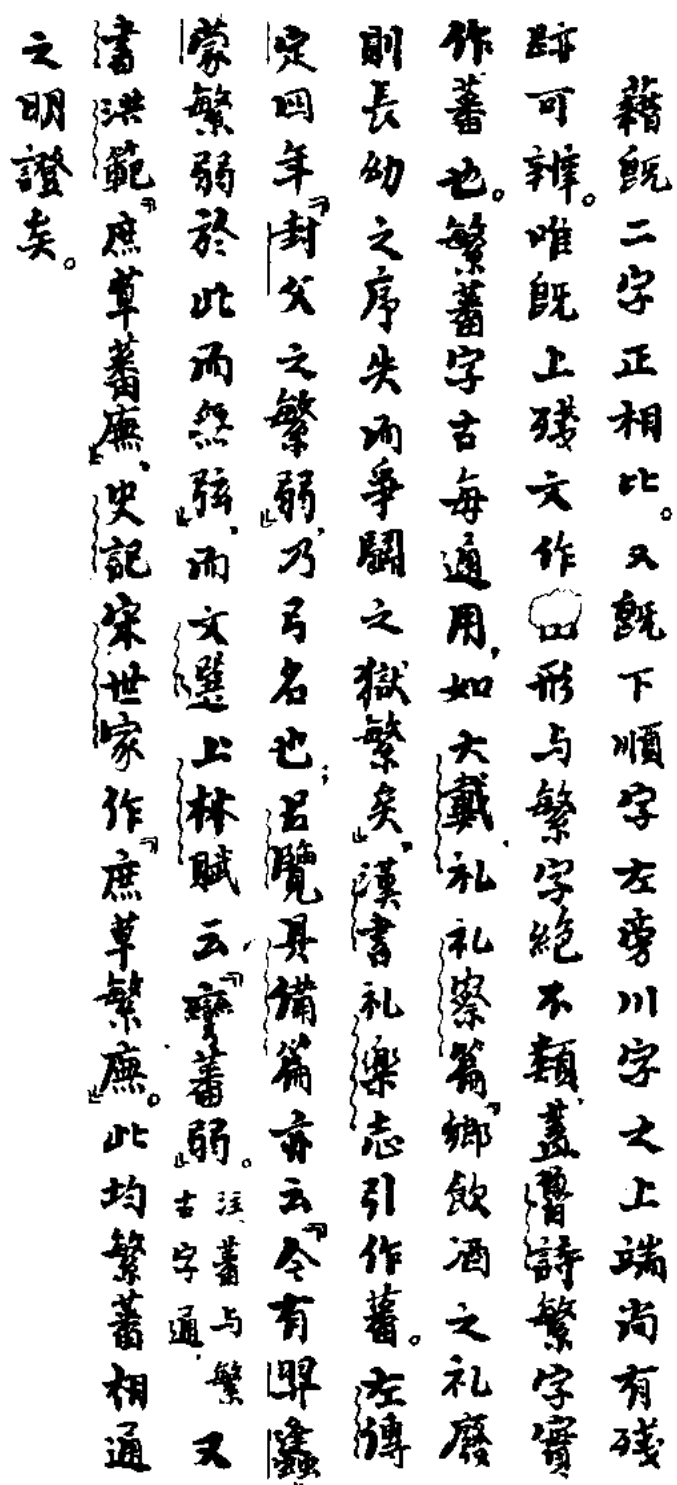 藉旣二字正相比。又旣下順字左旁川字之上端尚有殘
跡可辨。唯旣上殘文作形与繁字絕不類，蓋魯詩繁字實
作蕃也。繁蕃字古每通用，如大戴礼礼察篇『鄉飲酒之礼廢
則長幼之序失而爭鬭之獄繁矣』，漢書礼樂志引作蕃。左傳
定四年『封父之繁弱』，乃弓名也；呂覽具備篇亦云『今有羿蠭
蒙繁弱於此而無弦』，而文選上林賦云『彎蕃弱』。注，蕃与繁古字通，又
書洪範『庶草蕃廡』，史記宋世家作『庶草繁廡』。此均繁蕃相通
之明證矣。